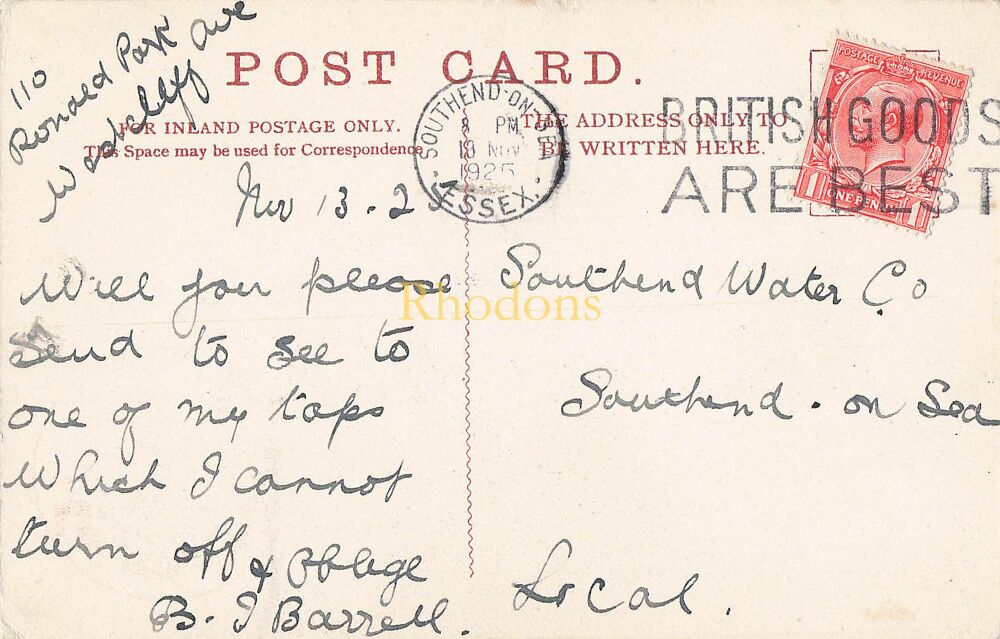 110
Ronald Park Ave
Westcliff
POST CARD.
FOR INLAND POSTAGE ONLY.
This Space may be used for Correspondence
THE ADDRESS ONLY TO
BE WRITTEN HERE.
SOUTHEND-ON-SEA
8 PM
13 NOV
1925
ESSEX.
BRITISH GOODS
ARE BEST
POSTAGE REVENUE
1 ONE PENNY 1
Nov 13. 25
Will you please
send to see to
one of my taps
which I cannot
turn off
& oblige
B. J Barrell.
Southend Water Co
Southend. on Sea
Local.
Rhodons